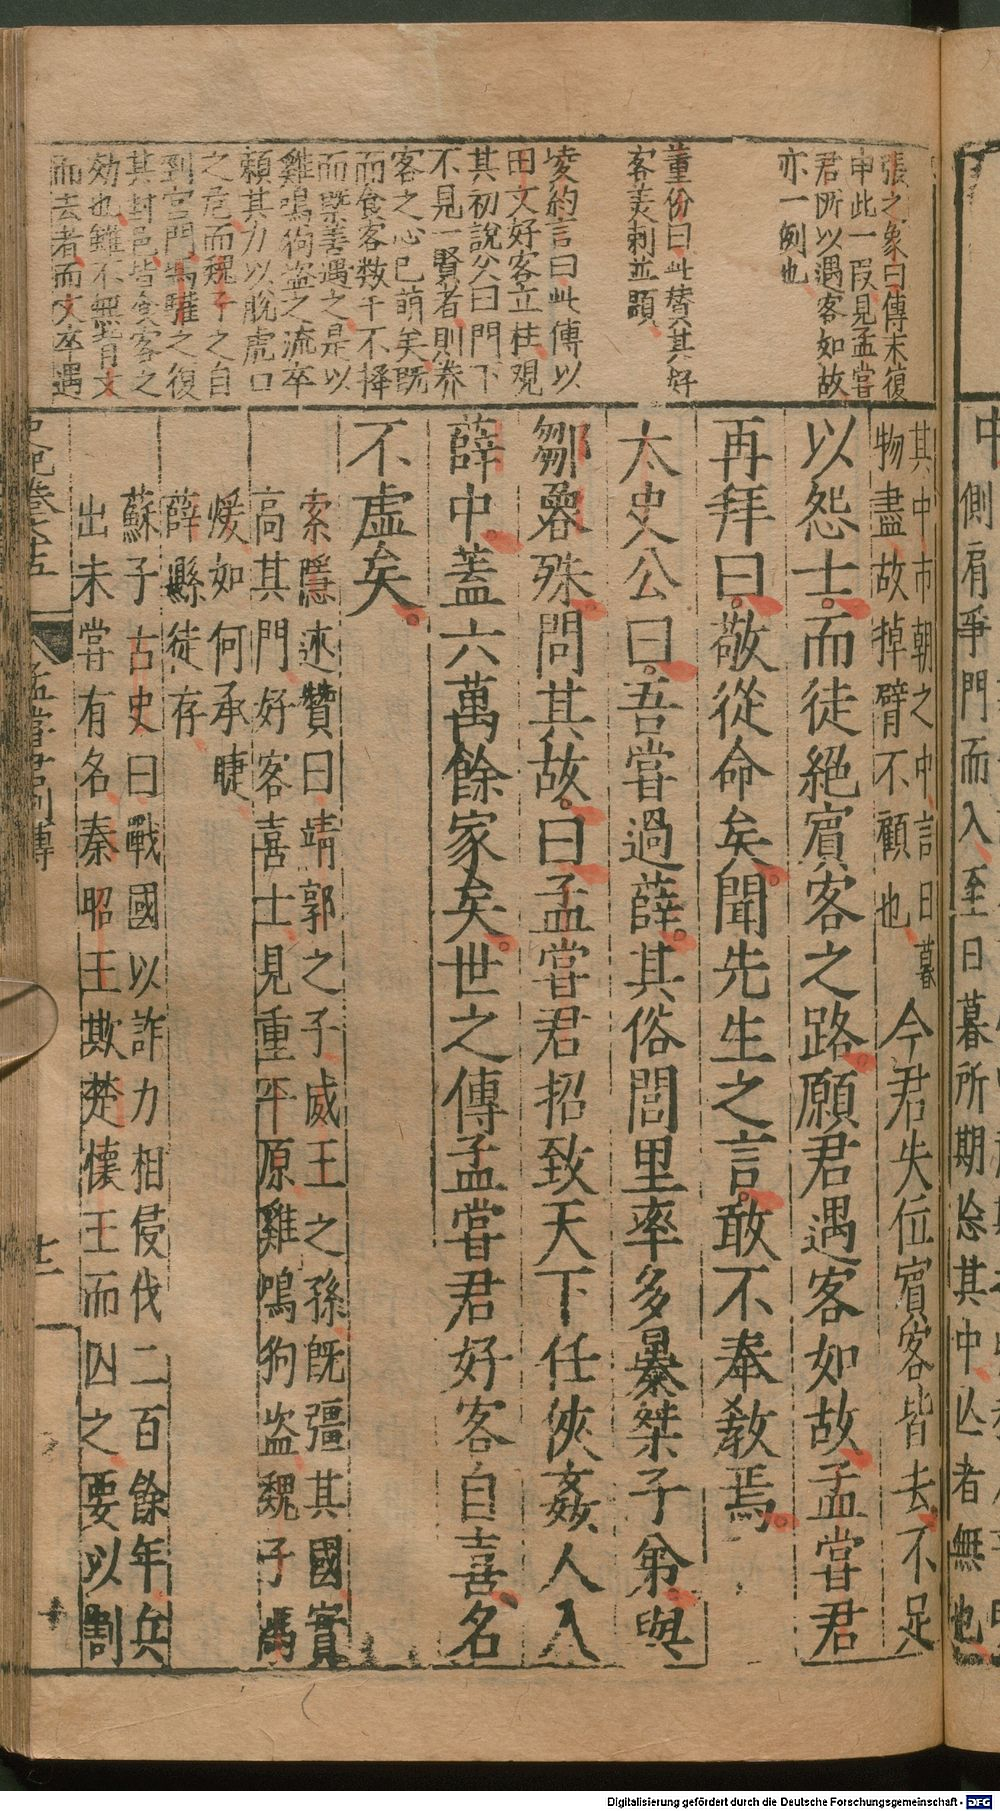 中
側肩爭門而入至日暮所期忩其中亾者無也
張之象曰傳末復
申此一叚見孟嘗
君所以遇客如故
亦一例也
董份曰此贊其好
客美刺並顯
凌約言曰此傳以
田文好客立柱觀
其初說父曰門下
不見一賢者則養
客之心已萌矣既
而食客数千不擇
而槩善遇之是以
雞鳴狗盗之流卒
頼其力以脫虎口
之危而魏子之自
到宫門馮驩之復
其封邑皆食客之
効也雖不無背文
而去者而文卒遇
其中市朝之中言日暮
物盡故掉臂不顧也
今君失位賓客皆去不足
以怨士而徒絕賓客之路願君遇客如故孟嘗君
再拜曰敬從命矣聞先生之言敢不奉敎焉
太史公曰吾嘗過薛其俗閭里率多暴桀子弟與
鄒魯殊問其故曰孟嘗君招致天下任俠姦人入
薛中蓋六萬餘家矣世之傳孟嘗君好客自喜名
不虛矣
索隱述贊曰靖郭之子威王之孫既彊其國實
高其門好客喜士見重平原雞鳴狗盗魏子馮
煖如何承睫
薛縣徒存
蘇子古史曰戰國以詐力相侵伐二百餘年兵
出未嘗有名秦昭王欺楚懷王而囚之要以割
孟嘗君列傳
十二
Digitalisierung gefördert durch die Deutsche Forschungsgemeinschaft - DFG